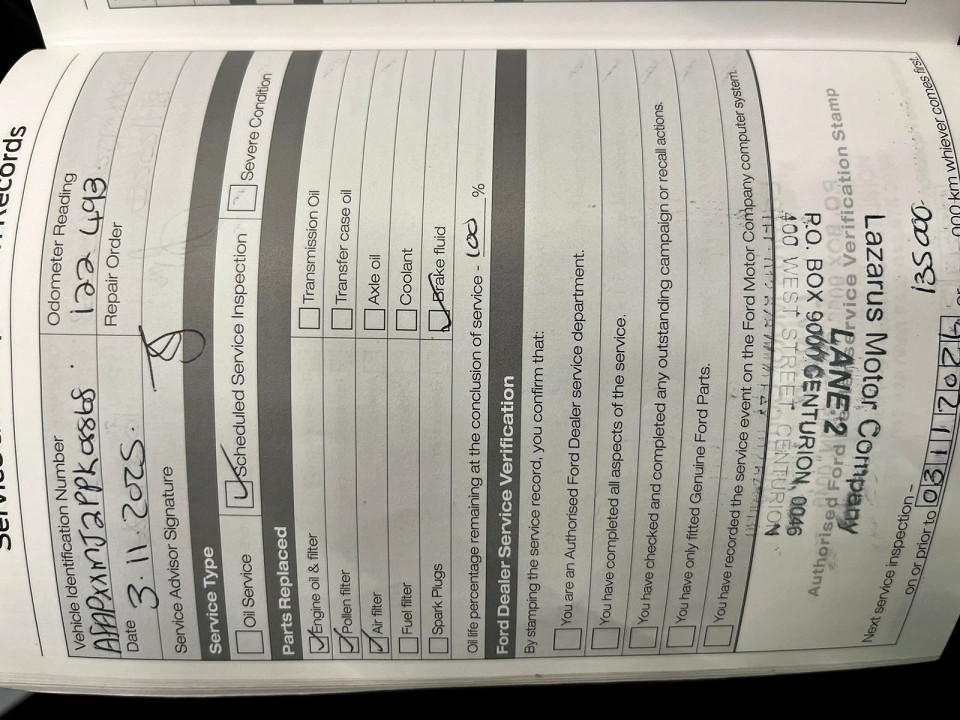 Vehicle Identification Number
Odometer Reading
122 493
Date 3.11.2025.
Repair Order
Service Advisor Signature
Service Type
Oil Service
Scheduled Service Inspection
Severe Condition
Parts Replaced
Engine oil & filter
Transmission Oil
Pollen filter
Transfer case oil
Air filter
Axle oil
Fuel filter
Coolant
Spark Plugs
Brake fluid
Oil life percentage remaining at the conclusion of service - 100 %
Ford Dealer Service Verification
By stamping the service record, you confirm that:
You are an Authorised Ford Dealer service department.
You have completed all aspects of the service.
You have checked and completed any outstanding campaign or recall actions.
You have only fitted Genuine Ford Parts.
You have recorded the service event on the Ford Motor Company computer system.
400 WEST STREET CENTURION
P.O. BOX CENTURION, 0046
Authorised Ford Service Verification Stamp
LANE 2
Lazarus Motor Company
Next service inspection -
135 000
on or prior to 03 11 202 or 000 km whichever comes first